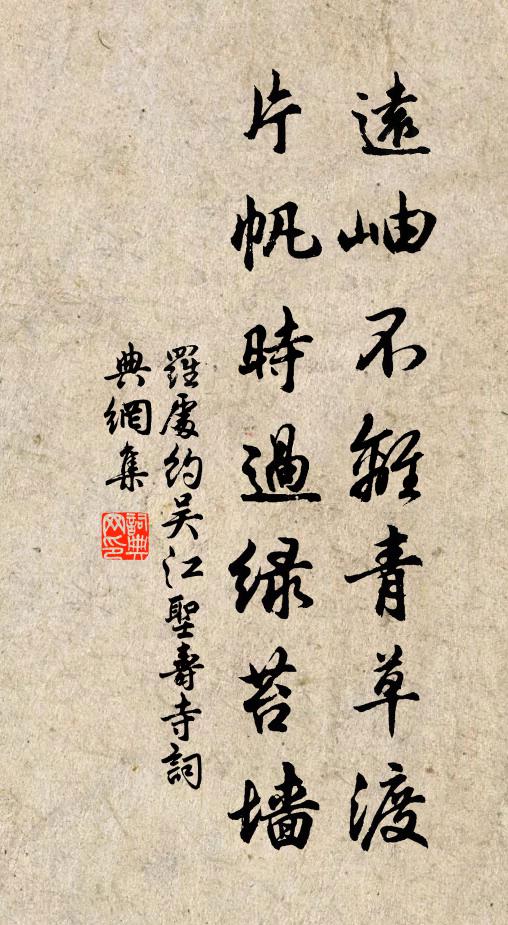 遠岫不離青草渡
片帆時過绿苔墙
羅處約吴江聖壽寺詞
典網集
詞典网印